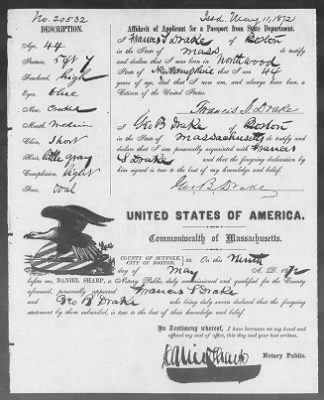 No. 20532
Issd. May 11, 1872
DESCRIPTION.
Affidavit of Applicant for a Passport from State Department.
Age, 44
I Francis S Drake of Boston
Stature, 5 ft 7
in the State of Mass to testify
Forehead, high
and declare that I was born in Northwood
Eyes, blue
in the State of N. Hampshire that I am 44
years of age, that I was and am, and always have been, a
Citizen of the United States.
Francis S. Drake
Mouth, medium
I Geo B Drake of Boston
Chin, Short
in the State of Massachusetts do testify and
Hair, gray
declare that I am personally acquainted with Francis
Complexion, light
S Drake and that the foregoing declaration by
Face, oval
him signed is true to the best of my knowledge and belief.
Geo. B. Drake
UNITED STATES OF AMERICA.
Commonwealth of Massachusetts.
COUNTY OF SUFFOLK,
CITY OF BOSTON,
ss. On this Ninth
day of May A. D. 1872
before me, DANIEL SHARP, a Notary Public, duly commissioned and qualified for the County
aforesaid, personally appeared Francis S Drake
and Geo B Drake who being duly sworn declared that the foregoing
statement by them subscribed, is true to the best of their knowledge and belief.
In Testimony whereof, I have hereunto set my hand and
affixed my seal of office, this day and year last written.
Daniel Sharp
Notary Public.